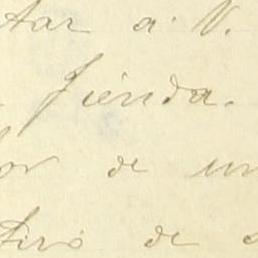 tar a V.
Tienda.
or de un
tiró de